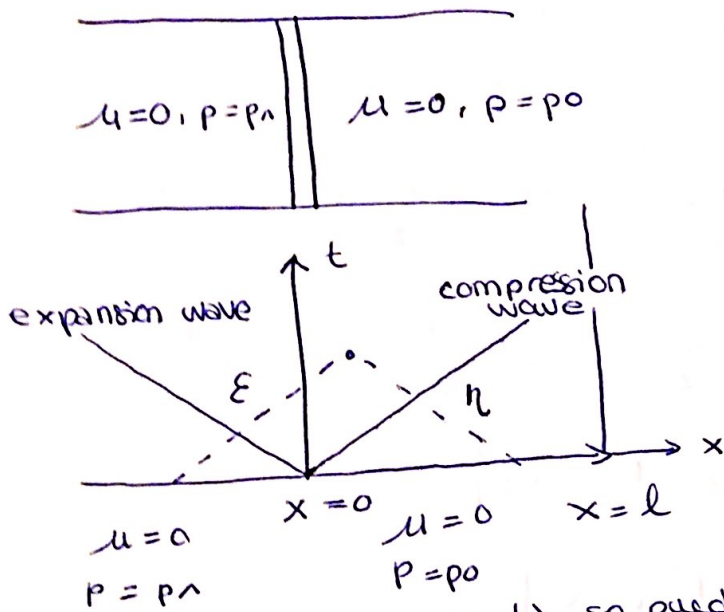 μ=0, p=p1 μ=0, p=p0
t
expansion wave
compression
wave
ε η
x
x=0 x=l
μ=0 μ=0
p=p1 p=p0